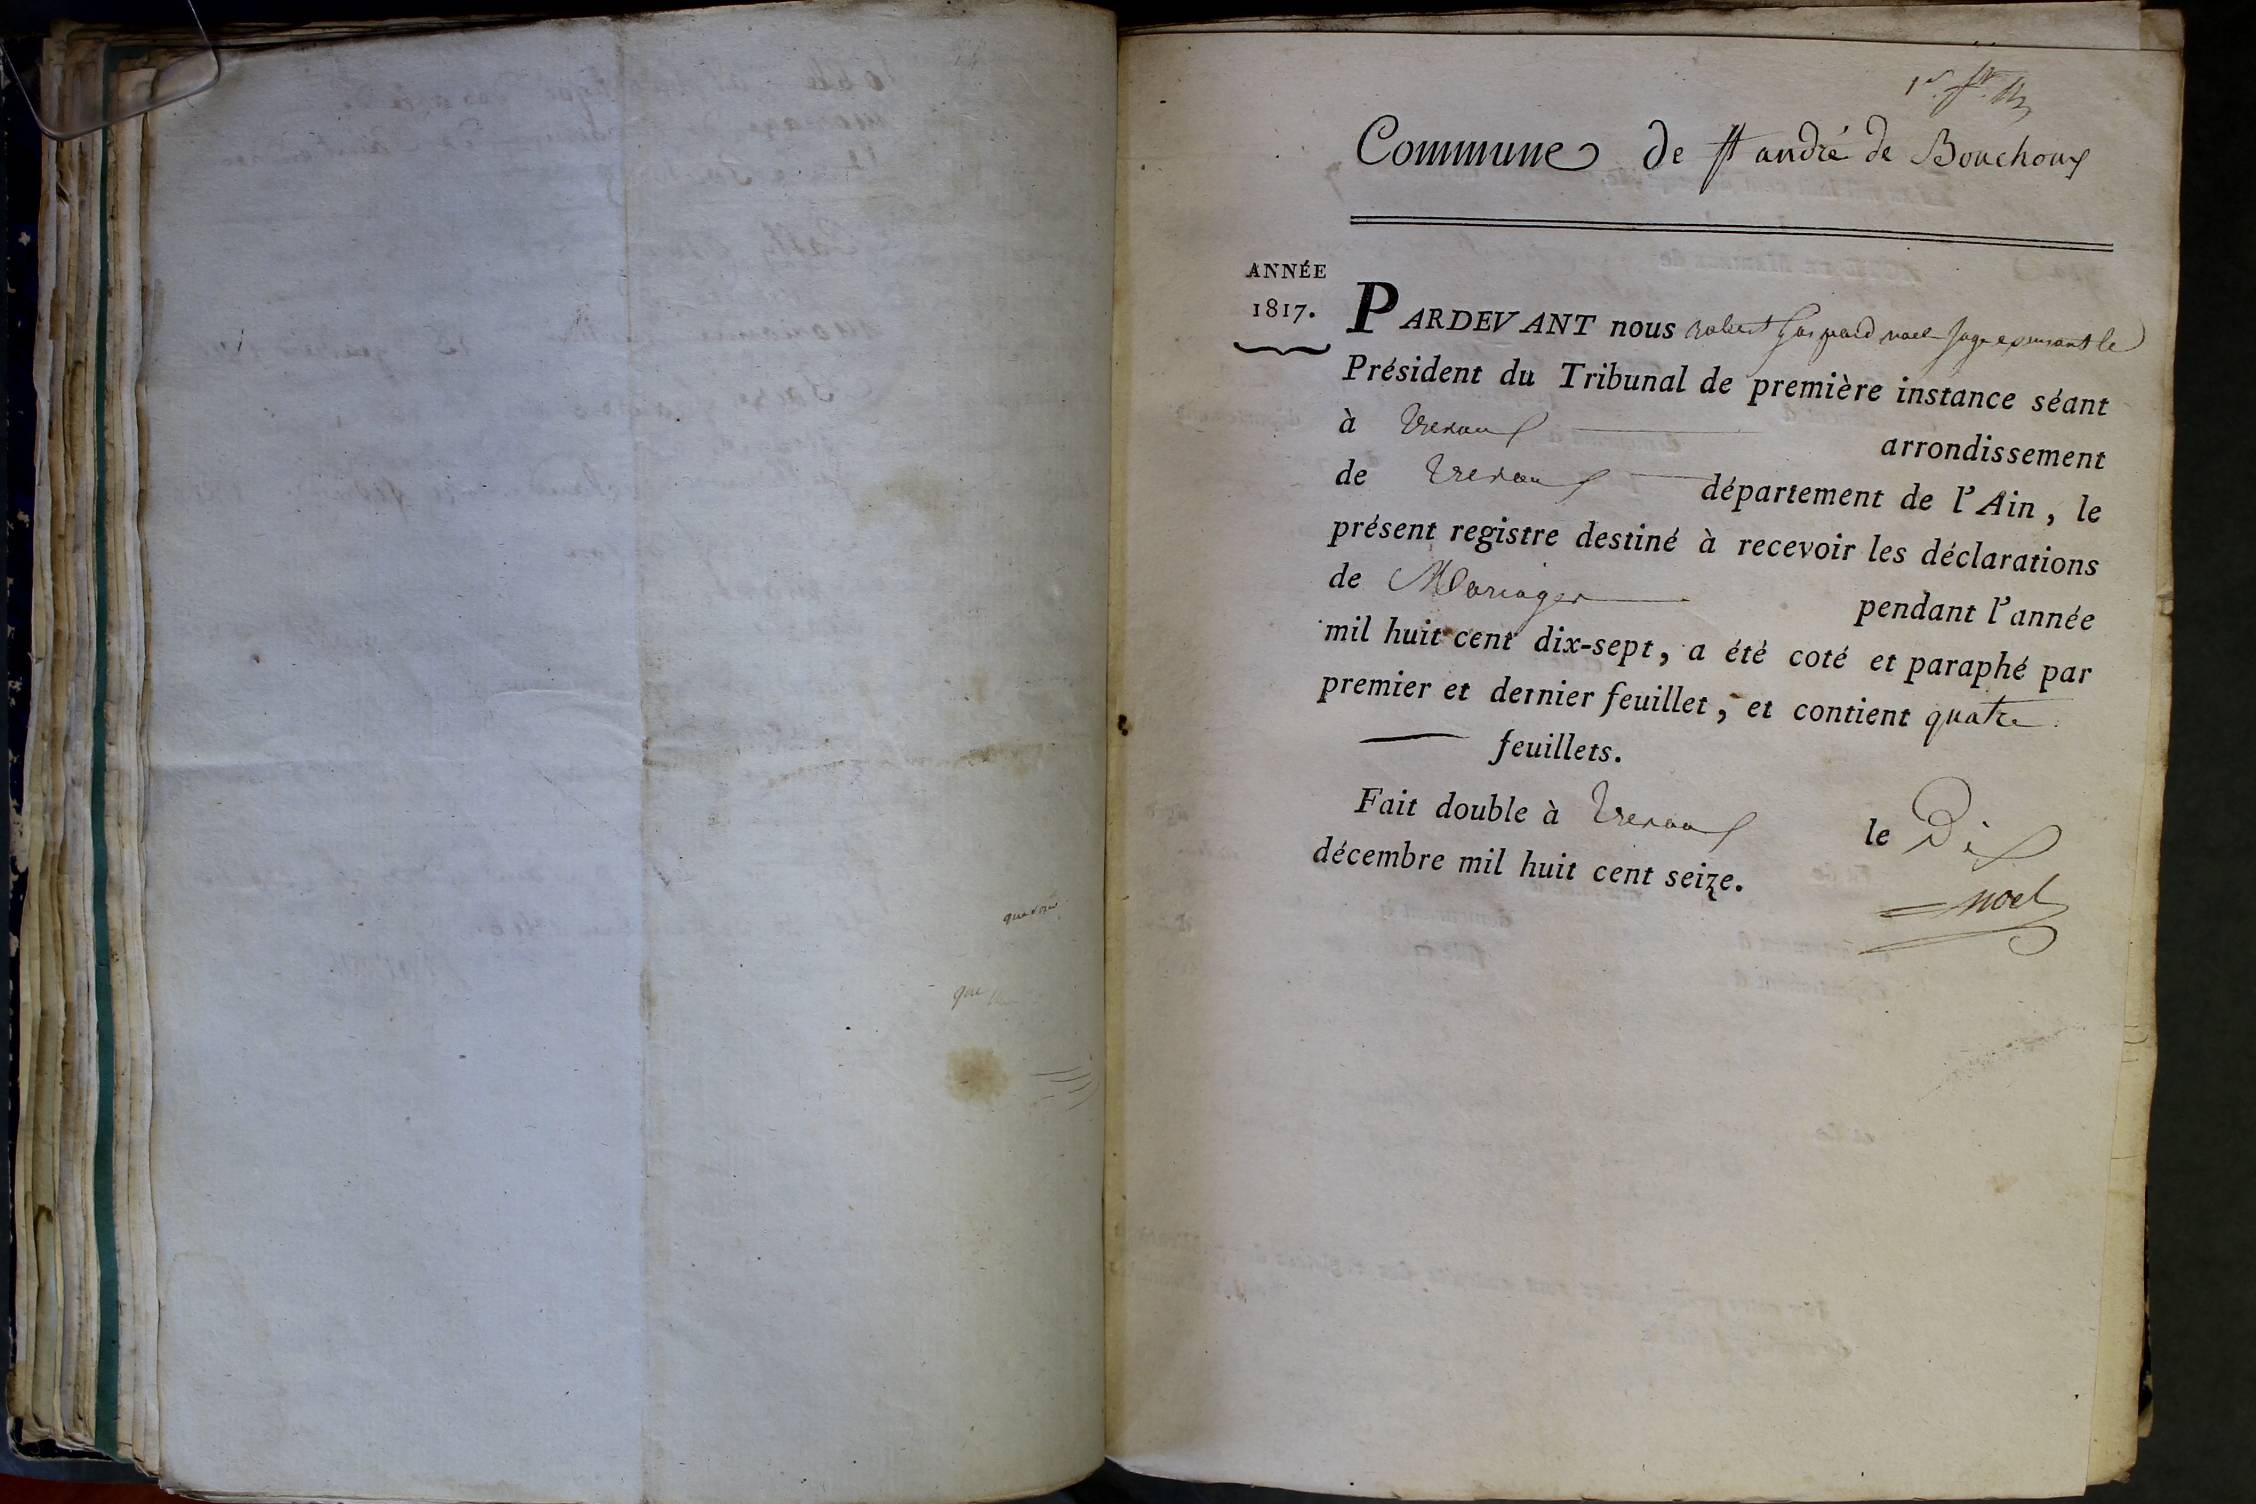 Commune de St andré de Bouchoux
ANNÉE
1817.
PARDEVANT nous robert Gaspard noel Juge exerçant le
Président du Tribunal de première instance séant
à Trevoux arrondissement
de Trevoux département de l'Ain, le
présent registre destiné à recevoir les déclarations
de Mariages pendant l'année
mil huit cent dix-sept, a été coté et paraphé par
premier et dernier feuillet, et contient quatre
feuillets.
Fait double à Trevoux le Dix
décembre mil huit cent seize.
noel